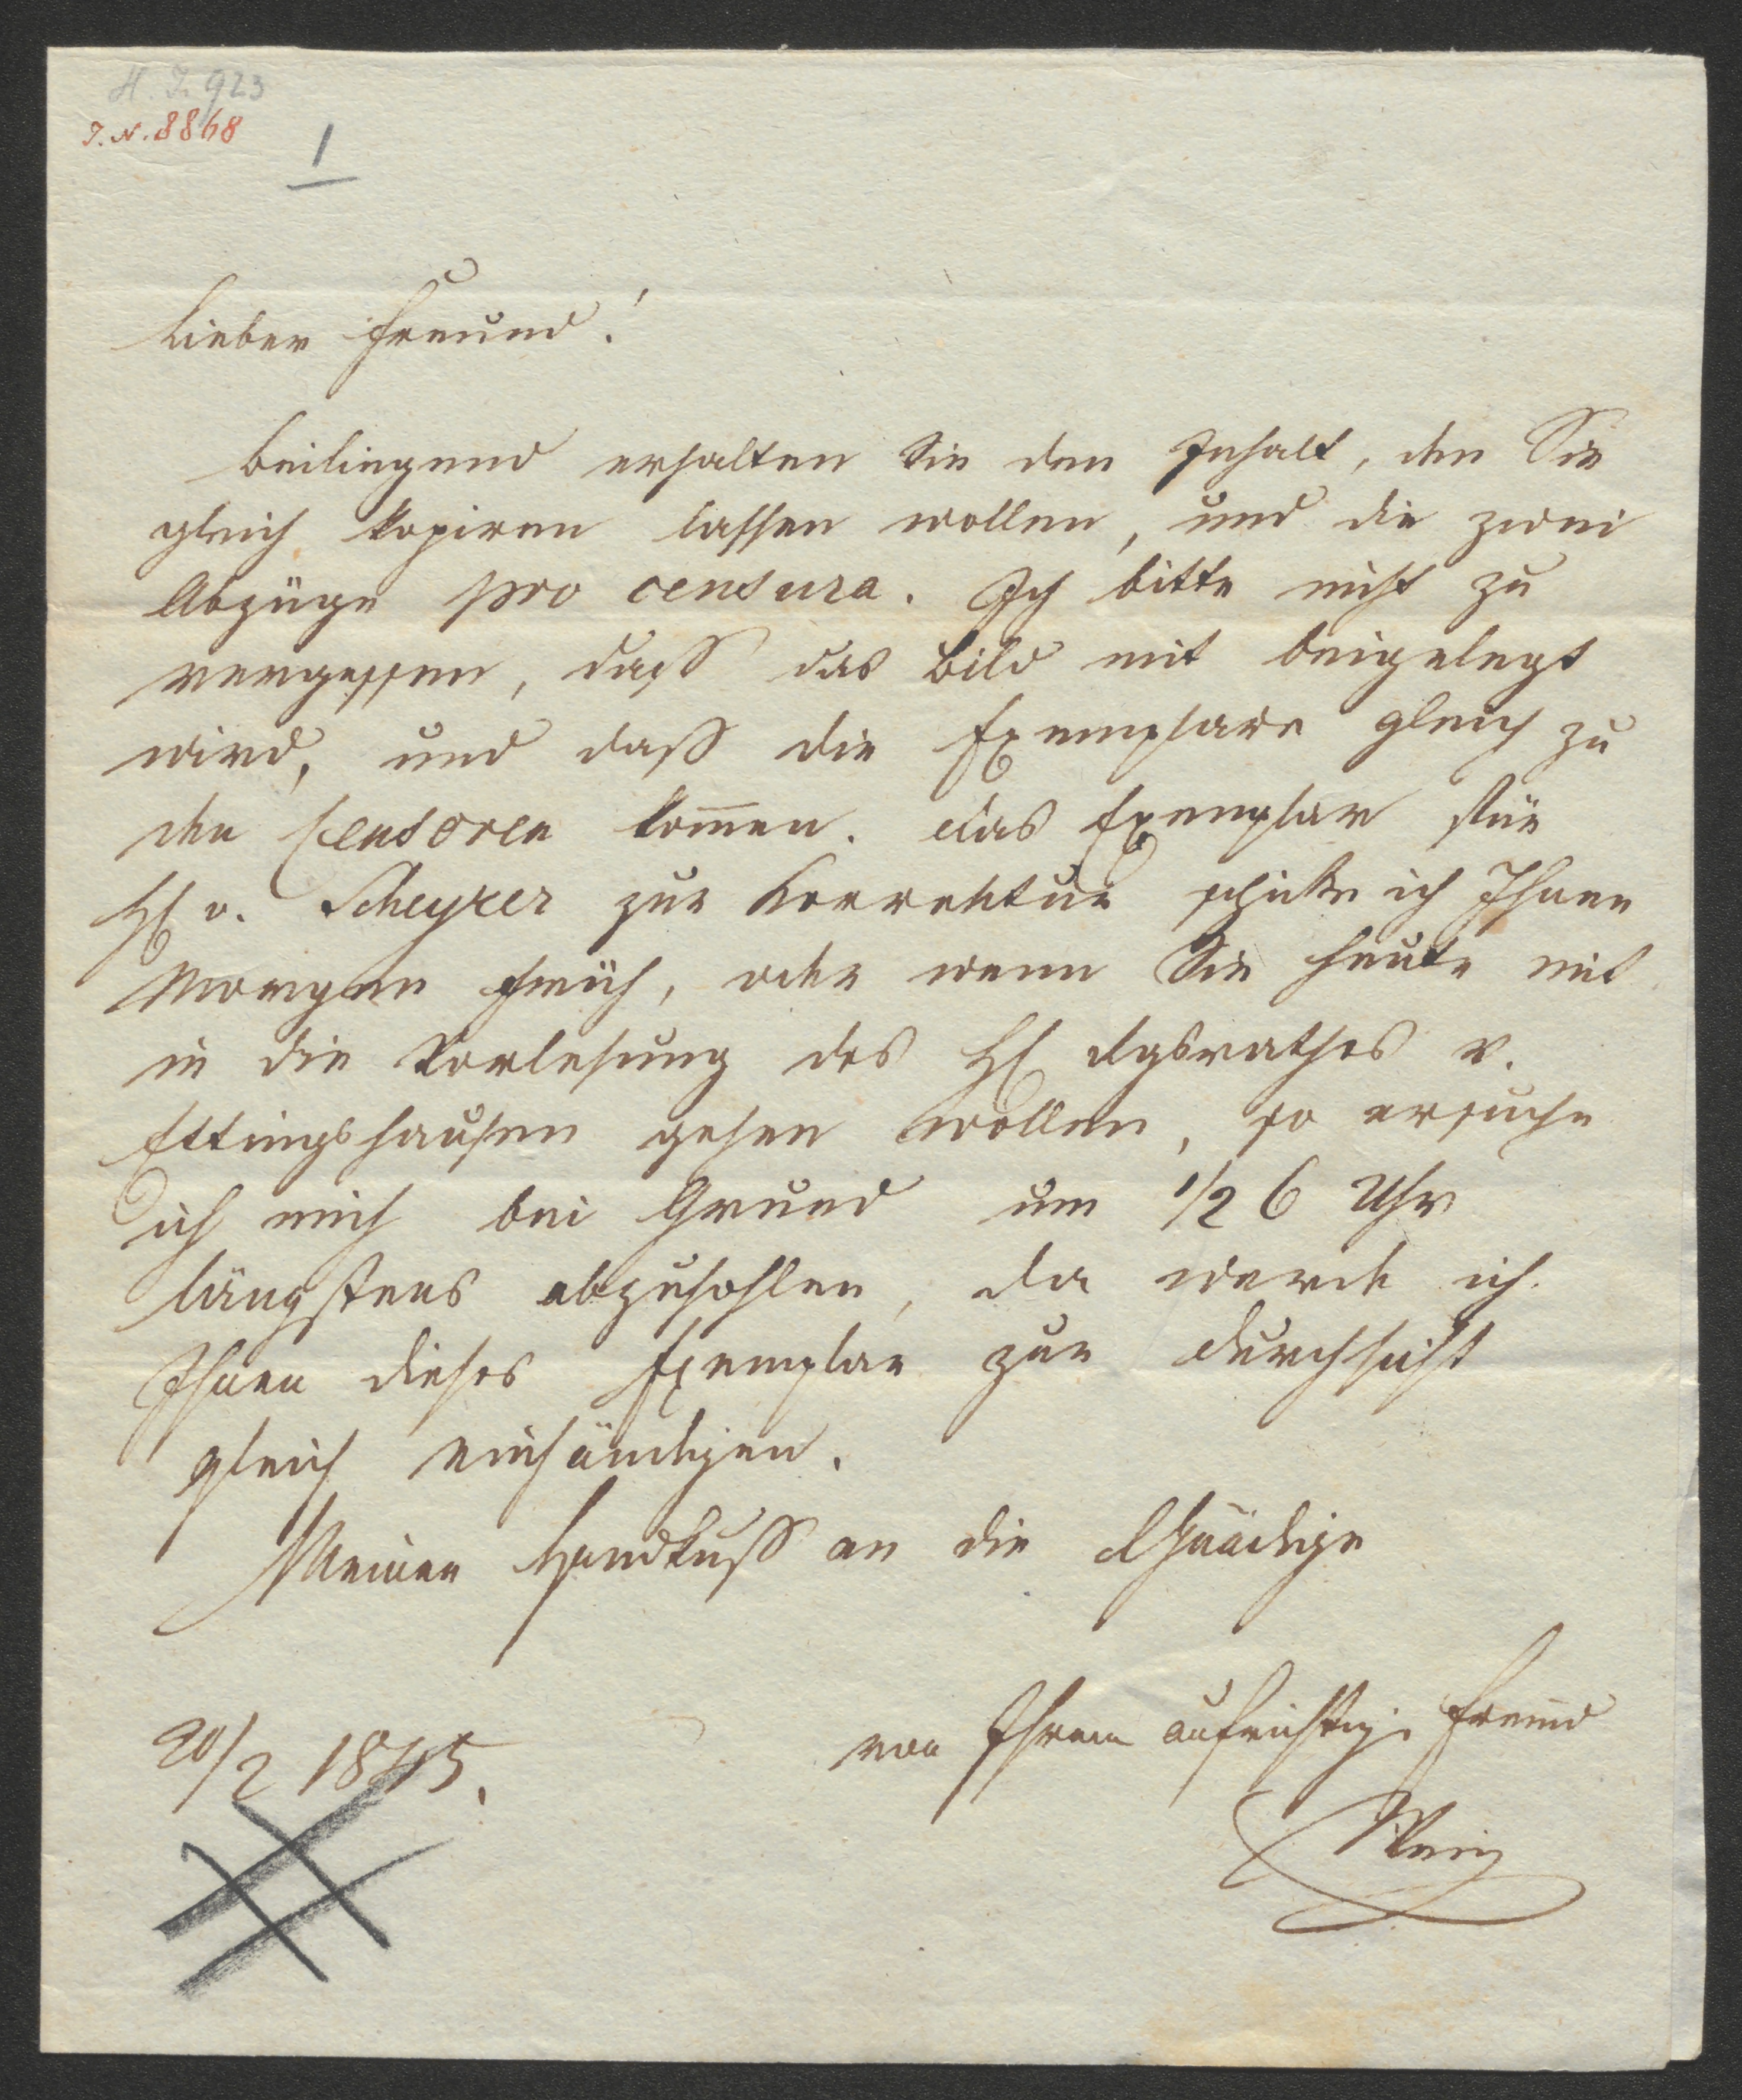 H. I. 923
I.N. 8868
1
Lieber Freund!
Beiliegend erhalten Sie den Inhalt, den Sie
gleich kopiren lassen wollen, und die zwei
Abzüge pro censura. Ich bitte nicht zu
vergessen, daß das Bild mit beigelegt
wird, und daß die Exemplare gleich zu
den Censoren kom̄en. Das Exemplar für
H v. Scheyrer zur Korrektur schicke ich Ihnen
Morgen früh, oder wenn Sie heute mit
in die Vorlesung des H Rgsrathes v.
Ettingshausen gehen wollen, so ersuche
ich mich bei Grund um 1/2 6 Uhr
längstens abzuhohlen, da werde ich
Ihnen dieses Exemplar zur Durchsicht
gleich einhändigen.
Meinen Handkuß an die Gnädige
von Ihrem aufrichtig. Freund
20/2 1845.